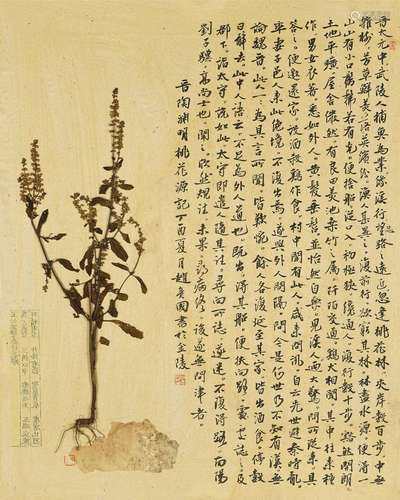 晋太元中武陵人捕魚為業緣溪行忘路之遠近忽逢桃花林夾岸數百步中無
雜樹芳草鮮美落英繽紛漁人甚異之復前行欲窮其林林盡水源便得
山山有小口髣髴若有光便捨船從口入初極狹纔通人復行數十步豁然開朗
土地平曠屋舍儼然有良田美池桑竹之屬阡陌交通雞犬相聞其中往來種
作男女衣著悉如外人黃髮垂髫並怡然自樂見漁人乃大驚問所從來具
答之便邀還家設酒殺雞作食村中聞有此人咸來問訊自云先世避秦時亂
率妻子邑人來此絕境不復出焉遂與外人間隔問今是何世乃不知有漢無
論魏晉此人一一為其言所聞皆歎惋餘人各復延至其家皆出酒食停數
日辭去此中人語云不足為外人道也既出得其船便扶向路處處誌之及
郡下詣太守說如此太守即遣人隨其往尋向所誌遂迷不復得路南陽
劉子驥高尚士也聞之欣然規往未果尋病終後遂無問津者
晉陶淵明桃花源記丁酉夏月趙國書於金陵